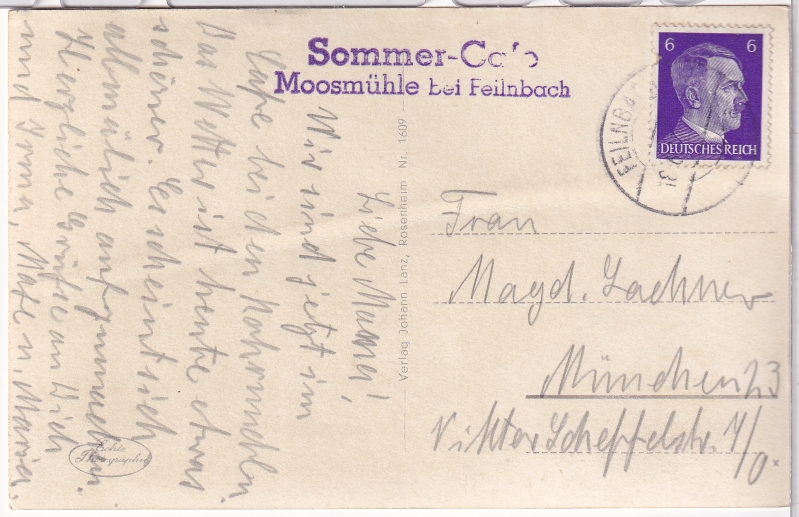 Sommer-Cafe
Moosmühle bei Feilnbach
6 6
DEUTSCHES REICH
FEILNBACH
Liebe Mama!
Wir sind jetzt im
Cafe bei den
Das Wetter ist heute etwas
schöner. Es scheint sich
allmälich aufzumachen.
Herzliche Grüße an Dich
und Irma, Maxe u. Maria.
Verlag Johann Lanz, Rosenheim Nr. 1609
Echte
Photographie
Frau
Magd. Lachner
München 23
Viktor Scheffelstr. 4/0.